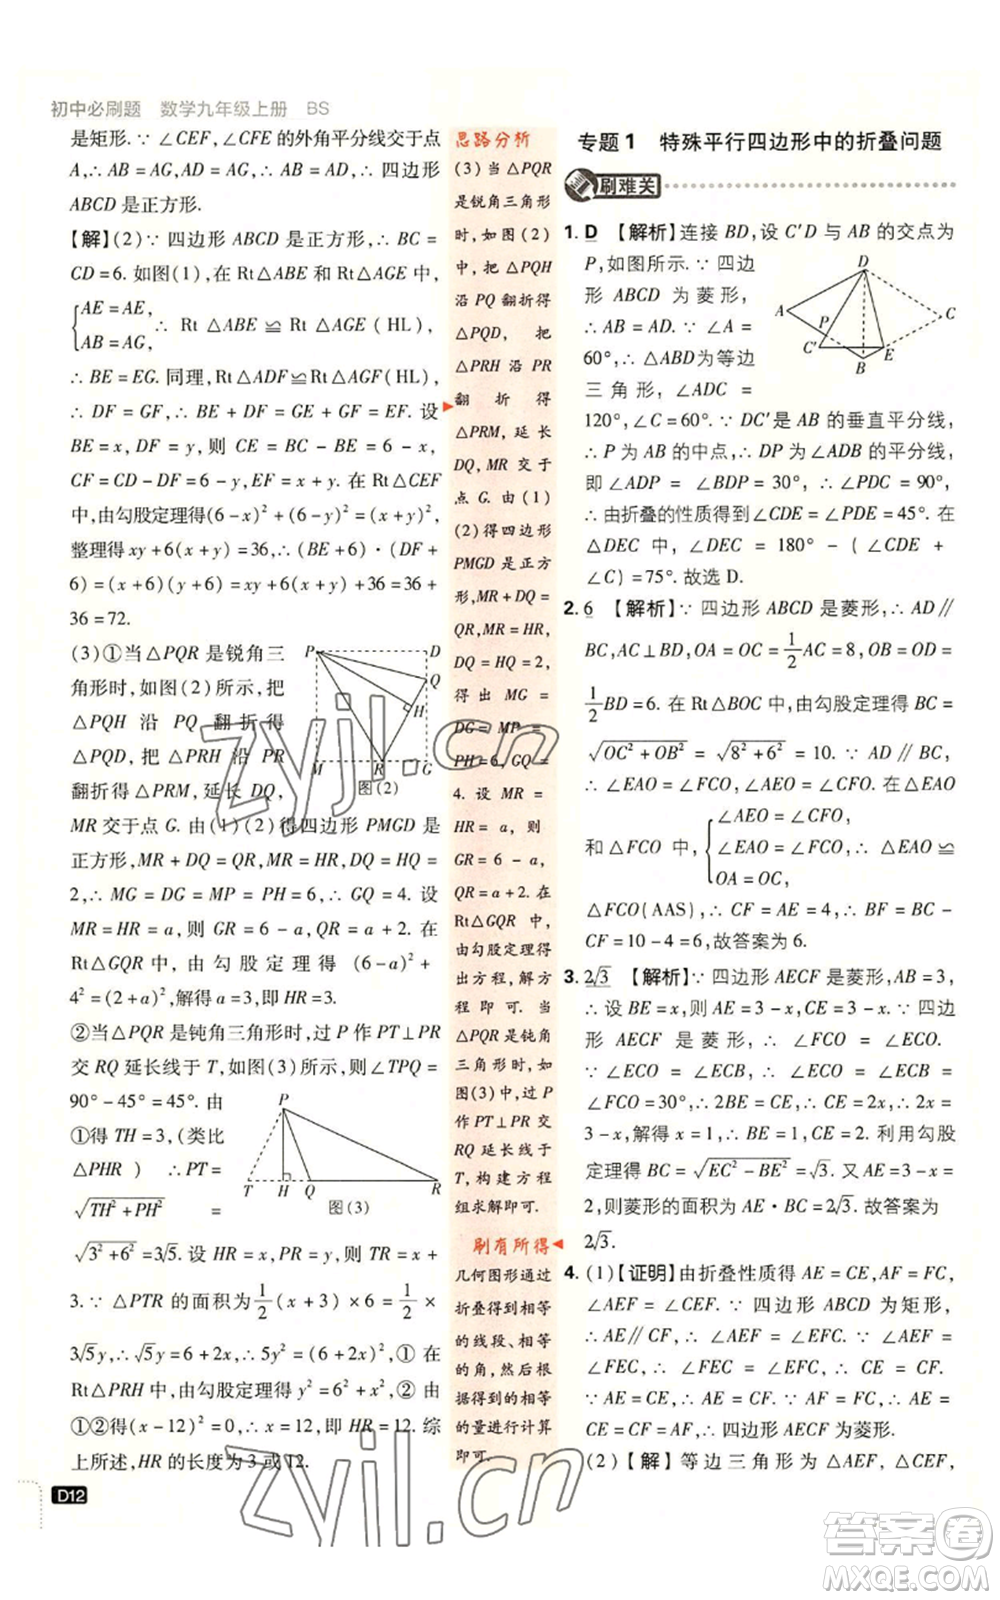 初中必刷题 数学九年级上册 BS
是矩形.∵∠CEF,∠CFE的外角平分线交于点
A,∴AB=AG,AD=AG,∴AB=AD,∴四边形
ABCD是正方形.
【解】(2)∵四边形ABCD是正方形,∴BC=
CD=6.如图(1),在Rt△ABE和Rt△AGE中,
{AE=AE,
AB=AG, ∴Rt△ABE≌Rt△AGE(HL),
∴BE=EG.同理,Rt△ADF≌Rt△AGF(HL),
∴DF=GF,∴BE+DF=GE+GF=EF.设
BE=x,DF=y,则CE=BC-BE=6-x,
CF=CD-DF=6-y,EF=x+y.在Rt△CEF
中,由勾股定理得(6-x)²+(6-y)²=(x+y)²,
整理得xy+6(x+y)=36,∴(BE+6)·(DF+
6)=(x+6)(y+6)=xy+6(x+y)+36=36+
36=72.
(3)①当△PQR是锐角三
角形时,如图(2)所示,把
△PQH沿PQ翻折得
△PQD,把△PRH沿PR
翻折得△PRM,延长DQ,
P D Q H M R G
图(2)
MR交于点G.由(1)(2)得四边形PMGD是
正方形,MR+DQ=QR,MR=HR,DQ=HQ=
2,∴MG=DG=MP=PH=6,∴GQ=4.设
MR=HR=a,则GR=6-a,QR=a+2.在
Rt△GQR中,由勾股定理得(6-a)²+
4²=(2+a)²,解得a=3,即HR=3.
②当△PQR是钝角三角形时,过P作PT⊥PR
交RQ延长线于T,如图(3)所示,∴∠TPQ=
90°-45°=45°.由
①得TH=3,(类比
△PHR)∴PT=
√(TH²+PH²) =
P T H Q R
图(3)
√(3²+6²)=3√5.设HR=x,则TR=x+
3.∵△PTR的面积为1/2(x+3)×6=1/2×
3√5y,∴√5y=2(x+3),∴(x+3)²=5/4y²,①在
Rt△PRH中,由勾股定理得x²+6²=y²,②由
①②得(x-12)²=0,∴x=12,即HR=12.综
上所述,HR的长度为3或12.
D12
思路分析
(3)当△PQR
是锐角三角形
时,如图(2)
中,把△PQH
沿PQ翻折得
△PQD,把
△PRH沿PR
翻折得
△PRM,延长
DQ,MR交于
点G.由(1)
(2)得四边形
PMGD是正方
形,MR+DQ=
QR,MR=HR,
DQ=HQ=2,
得出MG=
DG=MP=
PH=6,GQ=
4.设MR=
HR=a,则
GR=6-a,
QR=a+2.在
Rt△GQR中,
由勾股定理得
出方程,解方
程即可.当
△PQR是钝角
三角形时,如
图(3)中,过P
作PT⊥PR交
RQ延长线于
T,构建方程
组求解即可.
刷有所得
几何图形通过
折叠得到相等
的线段、相等
的角,然后根
据得到的相等
的量进行计算
即可.
专题1 特殊平行四边形中的折叠问题
刷难关
1.D 【解析】连接BD,设C′D与AB的交点为
P,如图所示.∵四边
形ABCD为菱形,
∴AB=AD.∵∠A=
60°,∴△ABD为等边
三角形,∠ADC=
D A P C C′ E B
120°,∠C=60°.∵DC′是AB的垂直平分线,
∴P为AB的中点,∴DP为∠ADB的平分线,
即∠ADP=∠BDP=30°,∴∠PDC=90°,
∴由折叠的性质得到∠CDE=∠PDE=45°.在
△DEC中,∠DEC=180°-(∠CDE+
∠C)=75°.故选D.
2.6 【解析】∵四边形ABCD是菱形,∴AD∥
BC,AC⊥BD,OA=OC=1/2AC=8,OB=OD=
1/2BD=6.在Rt△BOC中,由勾股定理得BC=
√(OC²+OB²)=√(8²+6²)=10.∵AD∥BC,
∴∠EAO=∠FCO,∠AEO=∠CFO.在△EAO
和△FCO中,{∠AEO=∠CFO,
∠EAO=∠FCO,
OA=OC, ∴△EAO≌
△FCO(AAS),∴CF=AE=4,∴BF=BC-
CF=10-4=6,故答案为6.
3.2√3 【解析】∵四边形AECF是菱形,AB=3,
∴设BE=x,则AE=3-x,CE=3-x.∵四边
形AECF是菱形,∴∠FCO=∠ECO.
∵∠ECO=∠ECB,∴∠ECO=∠ECB=
∠FCO=30°,∴2BE=CE,∴CE=2x,∴2x=
3-x,解得x=1,∴CE=2.利用勾股
定理得BC=√(EC²-BE²)=√3.又AE=3-x=
2,则菱形的面积为AE·BC=2√3.故答案为
2√3.
4.(1)【证明】由折叠性质得AE=CE,AF=FC,
∠AEF=∠CEF.∵四边形ABCD为矩形,
∴AE∥CF,∴∠AEF=∠EFC.∵∠AEF=
∠FEC,∴∠FEC=∠EFC,∴CE=CF.
∵AE=CE,AF=FC,CE=CF,∴AE=
CE=CF=AF,∴四边形AECF为菱形.
(2)【解】等边三角形为△AEF,△CEF,
zyjl.cn
zyjl.cn
答案圈
MXQE.COM